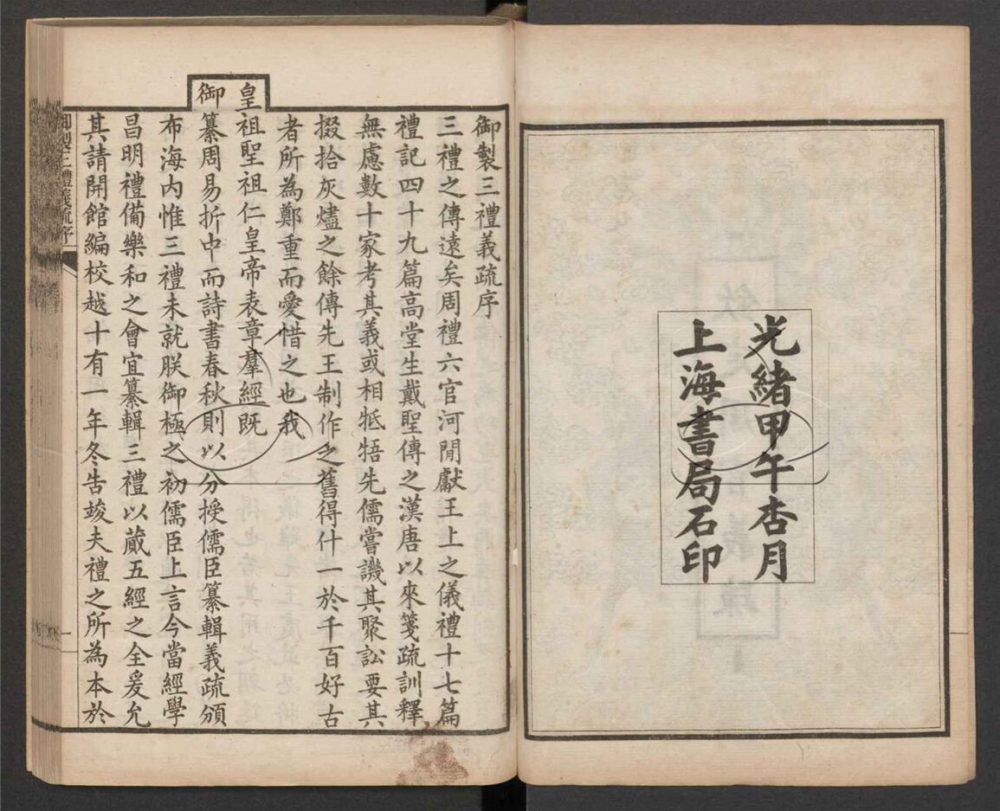 光緒甲午杏月
上海書局石印
御製三禮義疏序
三禮之傳遠矣周禮六官河閒獻王上之儀禮十七篇
禮記四十九篇高堂生戴聖傳之漢唐以來箋疏訓釋
無慮數十家考其義或相牴牾先儒嘗譏其聚訟要其
掇拾灰燼之餘傳先王制作之舊得什一於千百好古
者所為鄭重而愛惜之也我
皇祖聖祖仁皇帝表章羣經既
御纂周易折中而詩書春秋則以分授儒臣纂輯義疏頒
布海內惟三禮未就朕御極之初儒臣上言今當經學
昌明禮備樂和之會宜纂輯三禮以蕆五經之全爰允
其請開館編校越十有一年冬告竣夫禮之所為本於
御製三禮義疏序
一